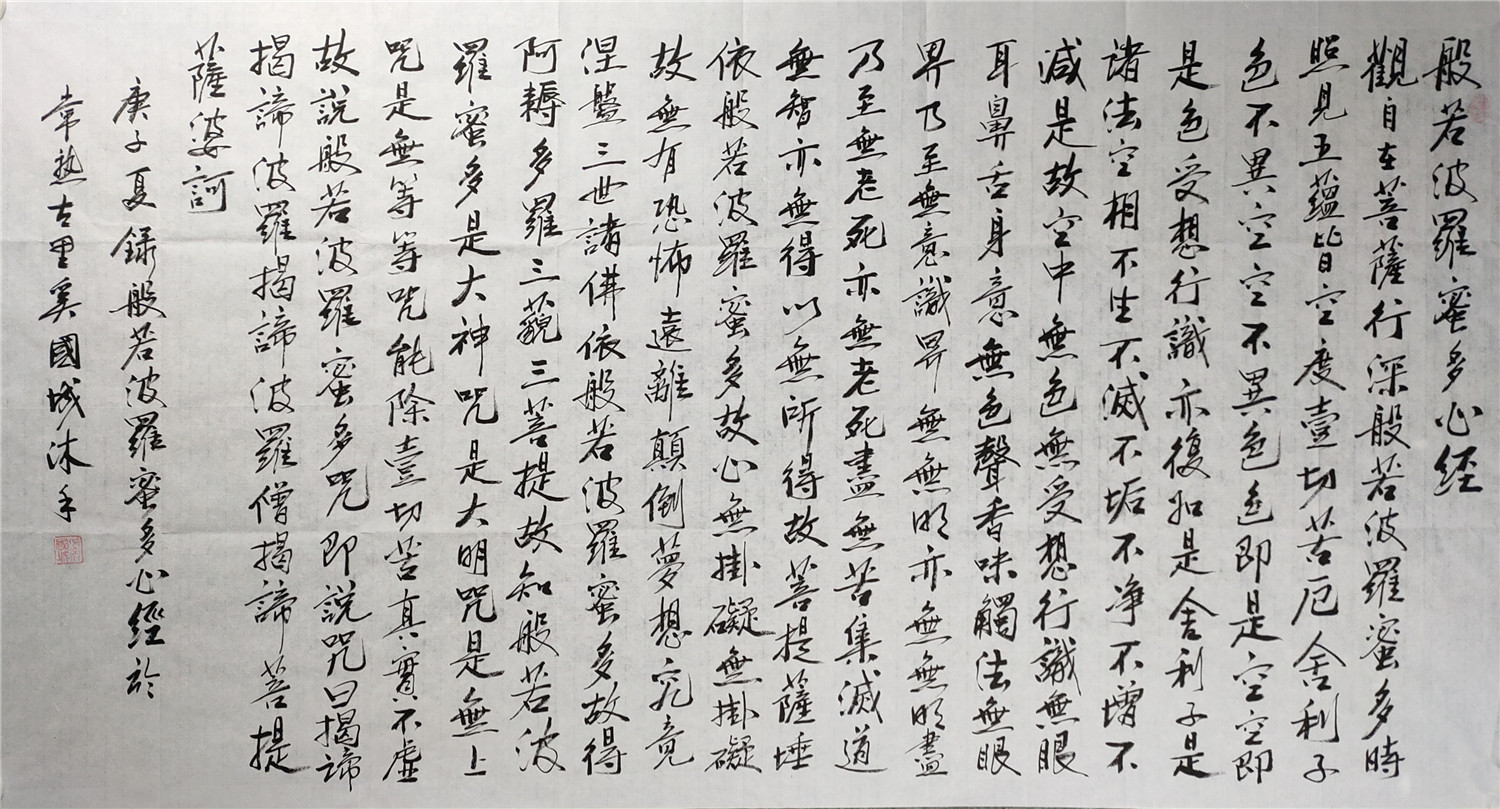 般若波羅蜜多心経
觀自在菩薩行深般若波羅蜜多時
照見五蘊皆空度壹切苦厄舍利子
色不異空空不異色色即是空空即
是色受想行識亦復如是舍利子是
諸法空相不生不滅不垢不净不增不
减是故空中無色無受想行識無眼
耳鼻舌身意無色聲香味觸法無眼
界乃至無意識界無無明亦無無明盡
乃至無老死亦無老死盡無苦集滅道
無智亦無得以無所得故菩提薩埵
依般若波羅蜜多故心無掛礙無掛礙
故無有恐怖遠離顛倒夢想究竟
涅盤三世諸佛依般若波羅蜜多故得
阿耨多羅三藐三菩提故知般若波
羅蜜多是大神咒是大明咒是無上
咒是無等等咒能除壹切苦真實不虛
故說般若波羅蜜多咒即說咒曰揭諦
揭諦波羅揭諦波羅僧揭諦菩提
薩婆訶
庚子夏錄般若波羅蜜多心經於
常熟古里吳國城沐手